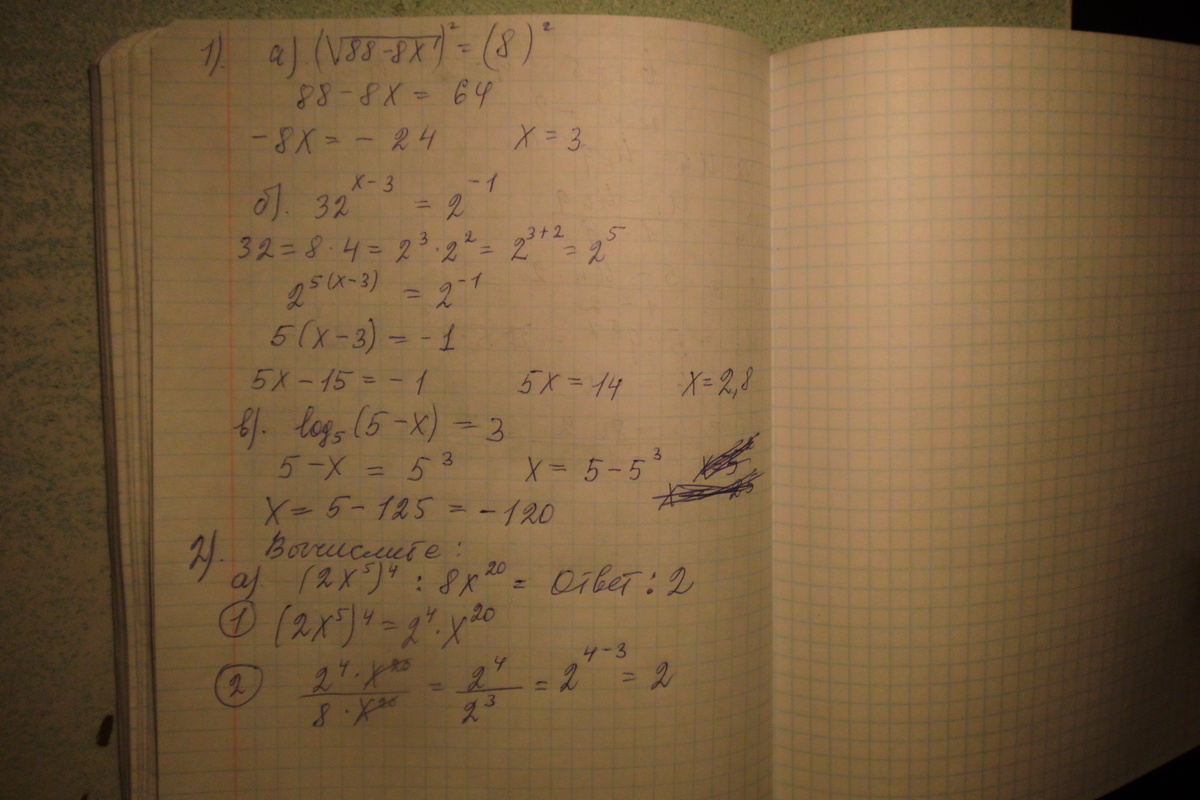 1). а) (√88-8x)² = (8)²
88-8x = 64
-8x = - 24 x = 3
б). 32^(x-3) = 2^(-1)
32 = 8·4 = 2³·2² = 2^(3+2) = 2⁵
2^(5(x-3)) = 2^(-1)
5(x-3) = -1
5x-15 = -1 5x = 14 x = 2,8
в). log₅(5-x) = 3
5-x = 5³ x = 5-5³
x = 5-125 = -120
2). Вычислите:
а) (2x⁵)⁴ : 8x²⁰ = Ответ: 2
① (2x⁵)⁴ = 2⁴·x²⁰
② (2⁴·x²⁰)/(8·x²⁰) = 2⁴/2³ = 2^(4-3) = 2